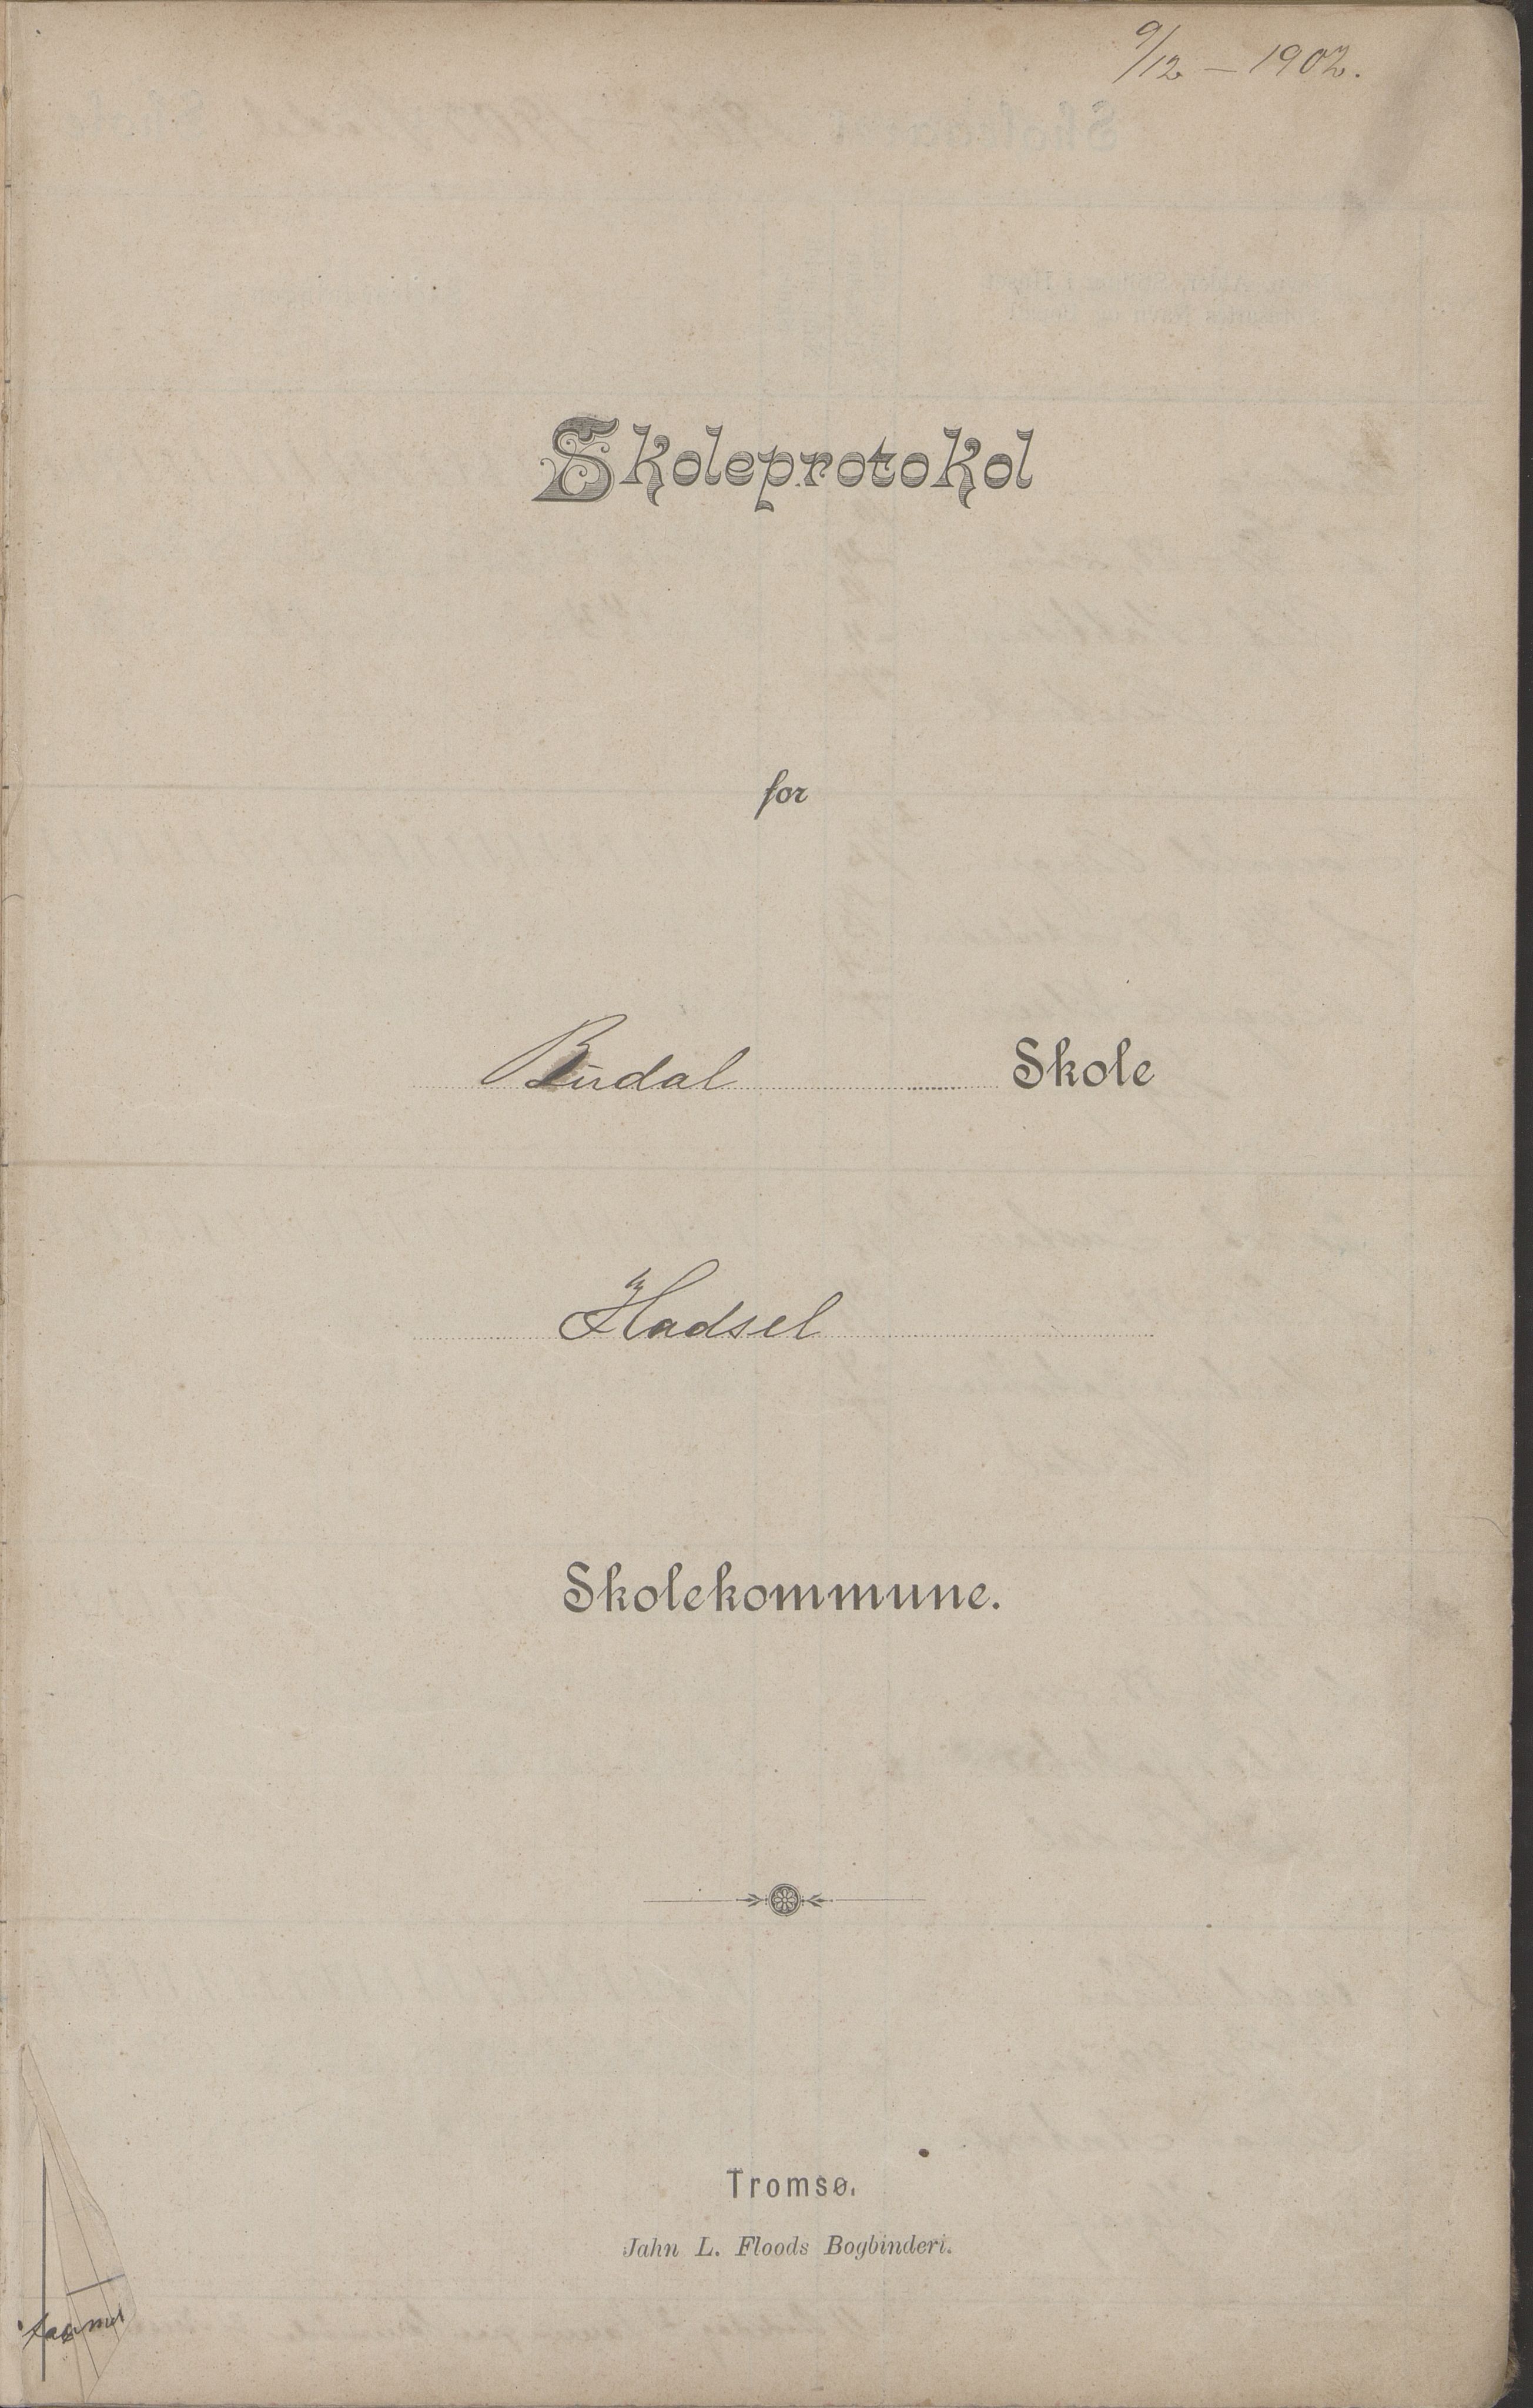 9/12 – 1902.
Skoleprotokol
for
Budal Skole
Hadsel
Skolekommune.
Tromsø.
Jahn L. Floods Bogbinderi.